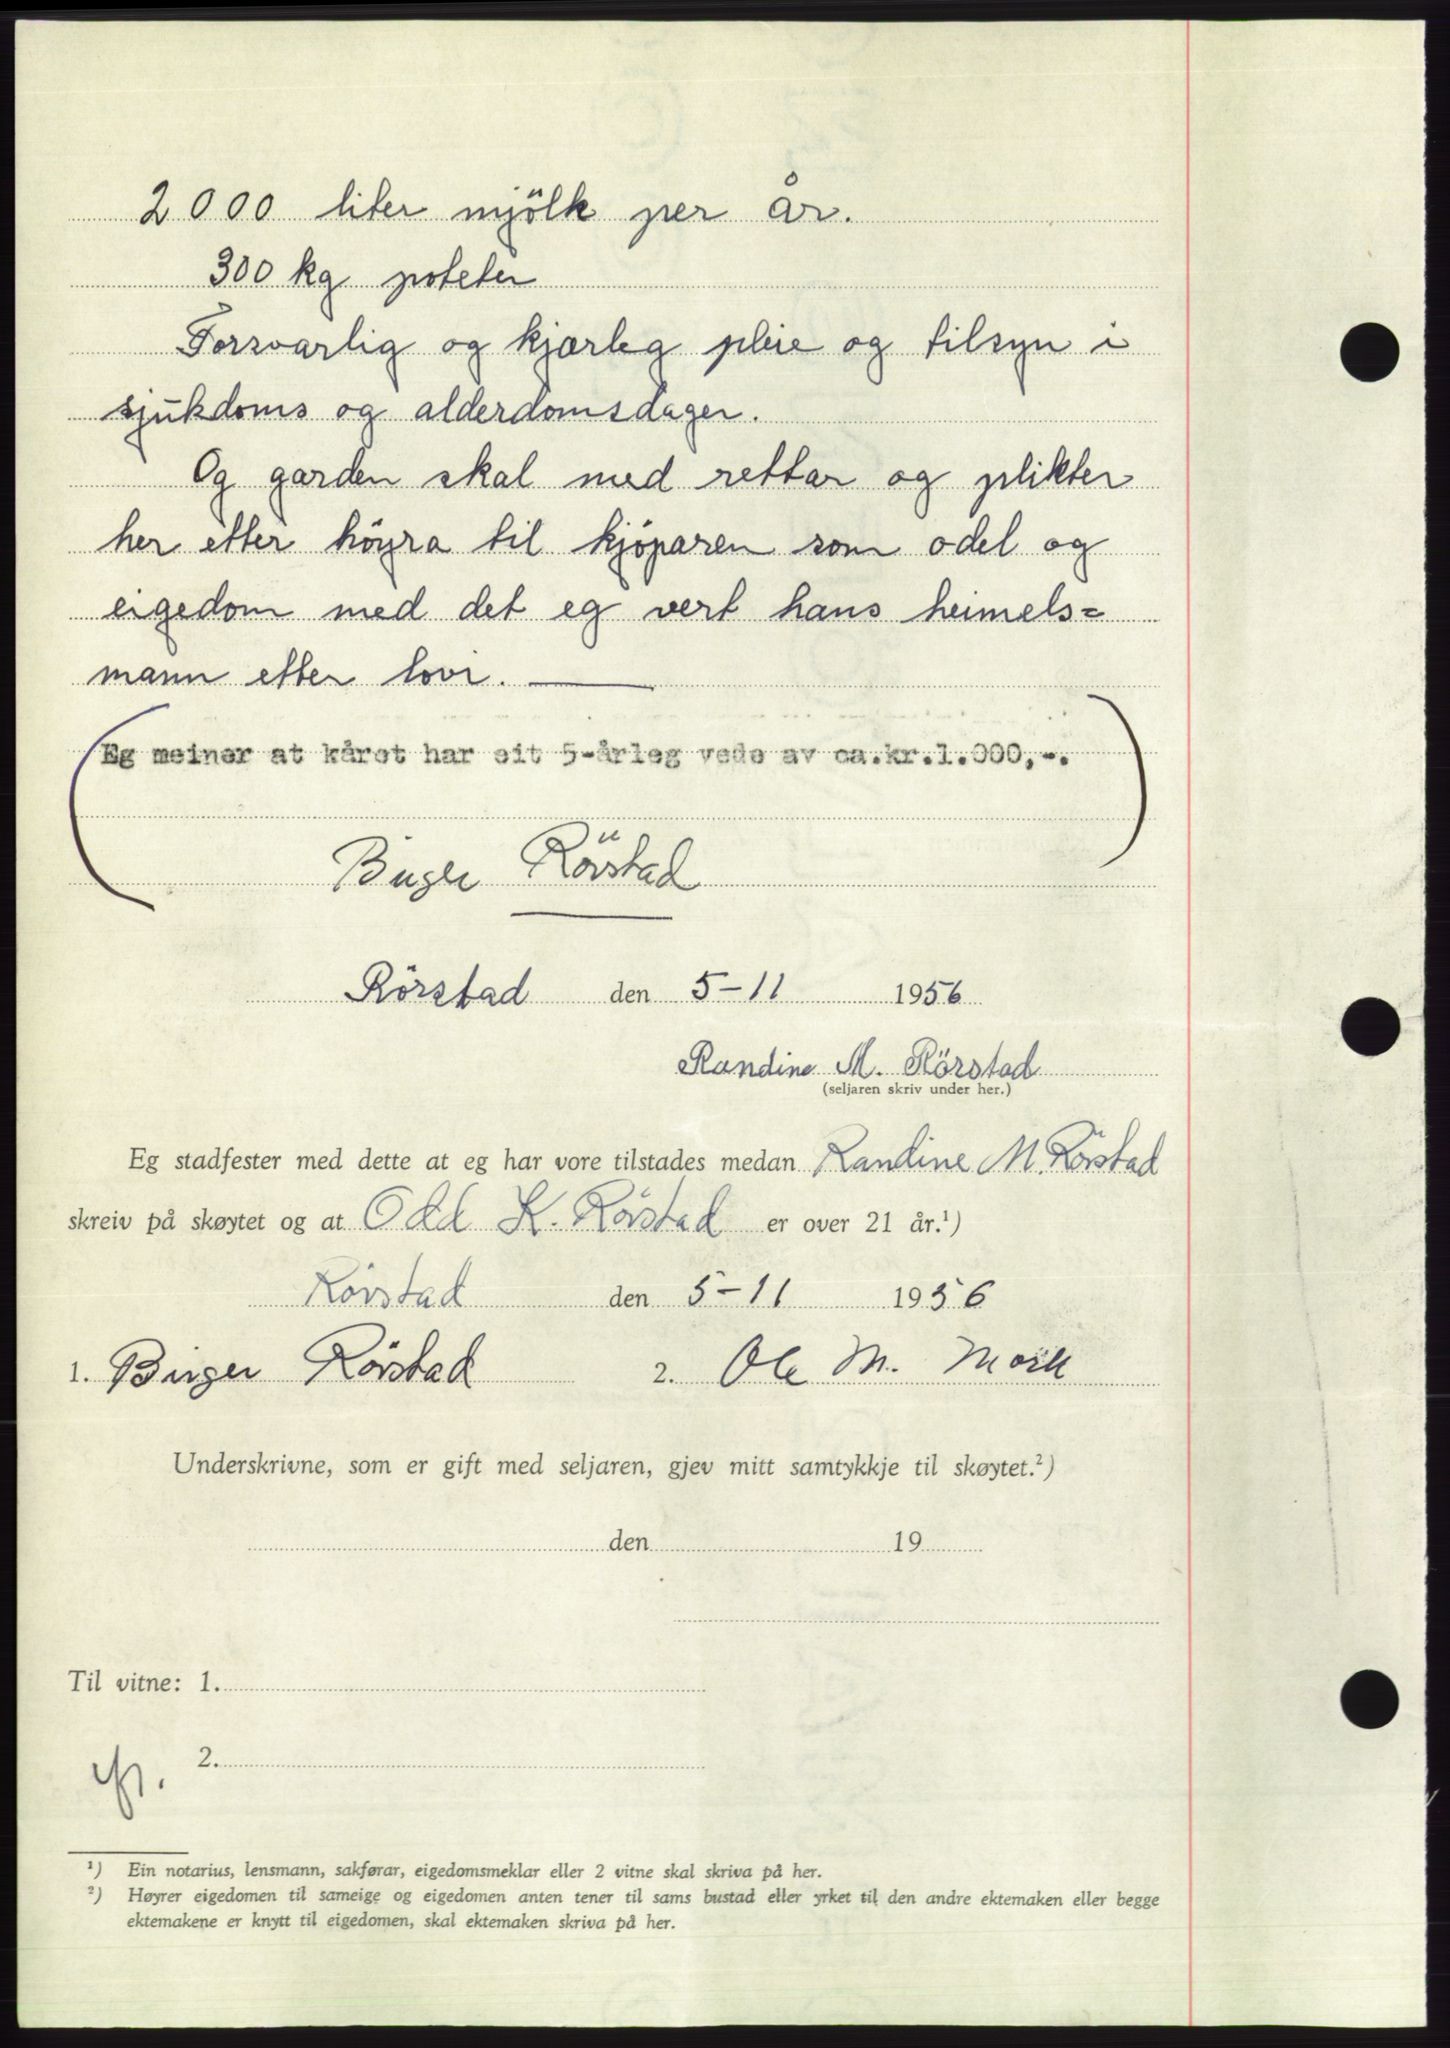 2000 liter mjölk per år.
300 kg poteter
Forsvarlig og kjærleg pleie og tilsyn i
sjukdoms og alderdomsdager.
Og garden skal med rettar og plikter
her etter höyra til kjöparen som odel og
eigedom med det eg vert hans heimels=
mann etter lovi.
Eg meiner at kåret har eit 5-årleg vede av ca.kr.1.000,-.
Birger Rörstad
Rörstad den 5-11 1956
Randine M. Rörstad
(seljaren skriv under her.)
Eg stadfester med dette at eg har vore tilstades medan Randine M. Rörstad
skreiv på skøytet og at Odd K. Rörstad er over 21 år.¹)
Rörstad den 5-11 1956
1. Birger Rörstad 2. Ole M. Moik
Underskrivne, som er gift med seljaren, gjev mitt samtykkje til skøytet.²)
den 19
Til vitne: 1.
2.
¹) Ein notarius, lensmann, sakførar, eigedomsmeklar eller 2 vitne skal skriva på her.
²) Høyrer eigedomen til sameige og eigedomen anten tener til sams bustad eller yrket til den andre ektemaken eller begge
ektemakene er knytt til eigedomen, skal ektemaken skriva på her.